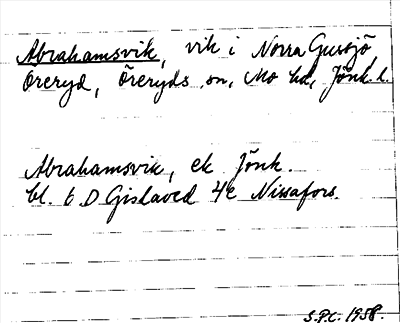 Abrahamsvik, vik i Norra Gussjö
Öreryd, Öreryds sn, Mo hd, Jönk. l.
Abrahamsvik, ek Jönk.
bl. 6 D Gislaved 4e Nissafors.
S.P.C. 1958.